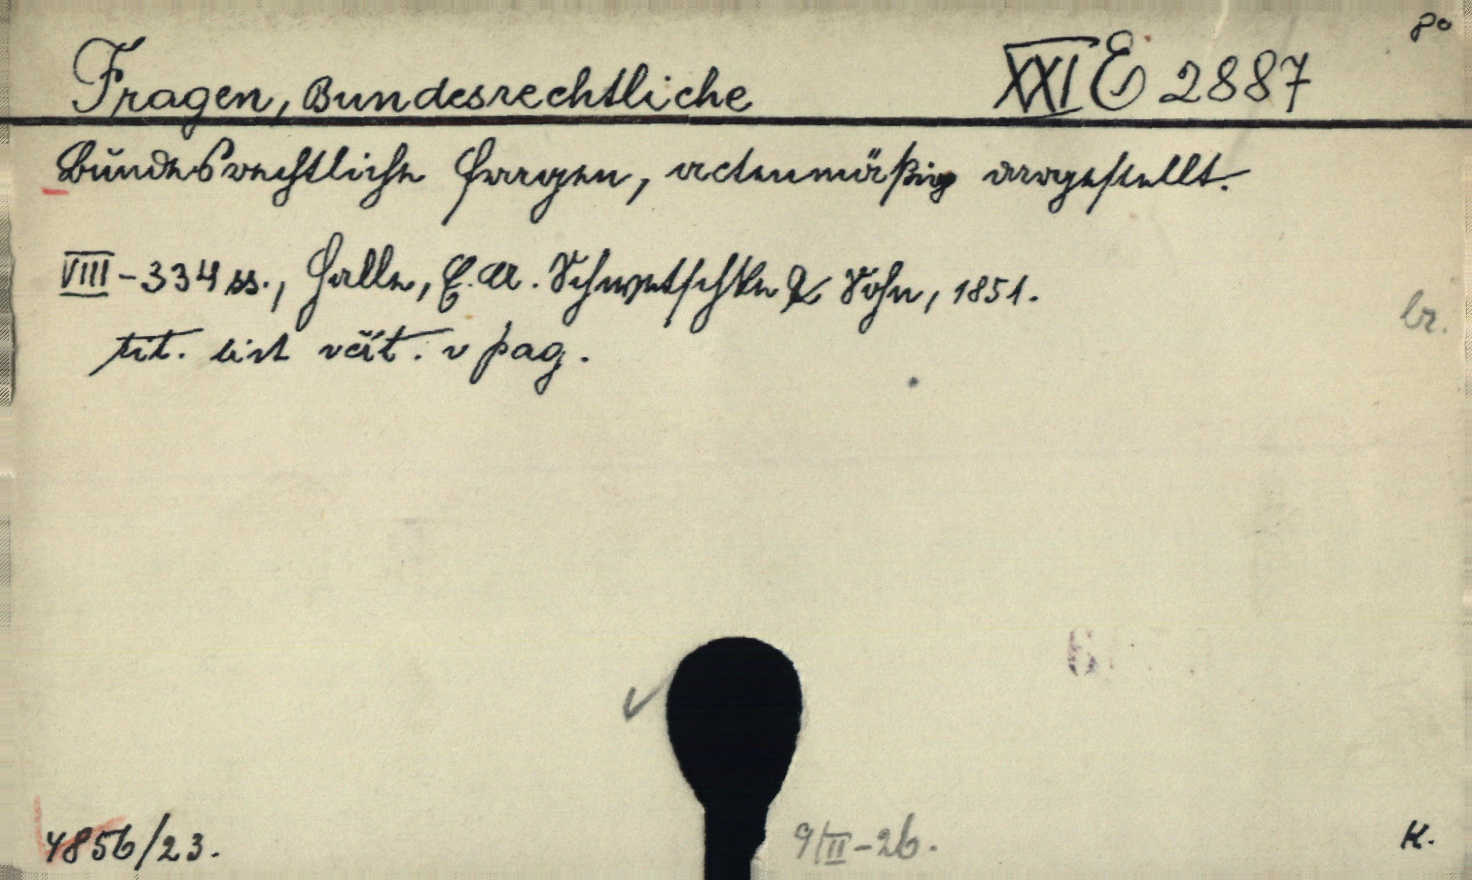 8°
Fragen, Bundesrechtliche XXI E 2887
Bundesrechtliche Fragen, actenmäßig dargestellt.
VIII-334 ss., Halle, C. A. Schwetschke & Sohn, 1851.
br.
tit. list včit. v pag.
4856/23.
9/II-26.
K.